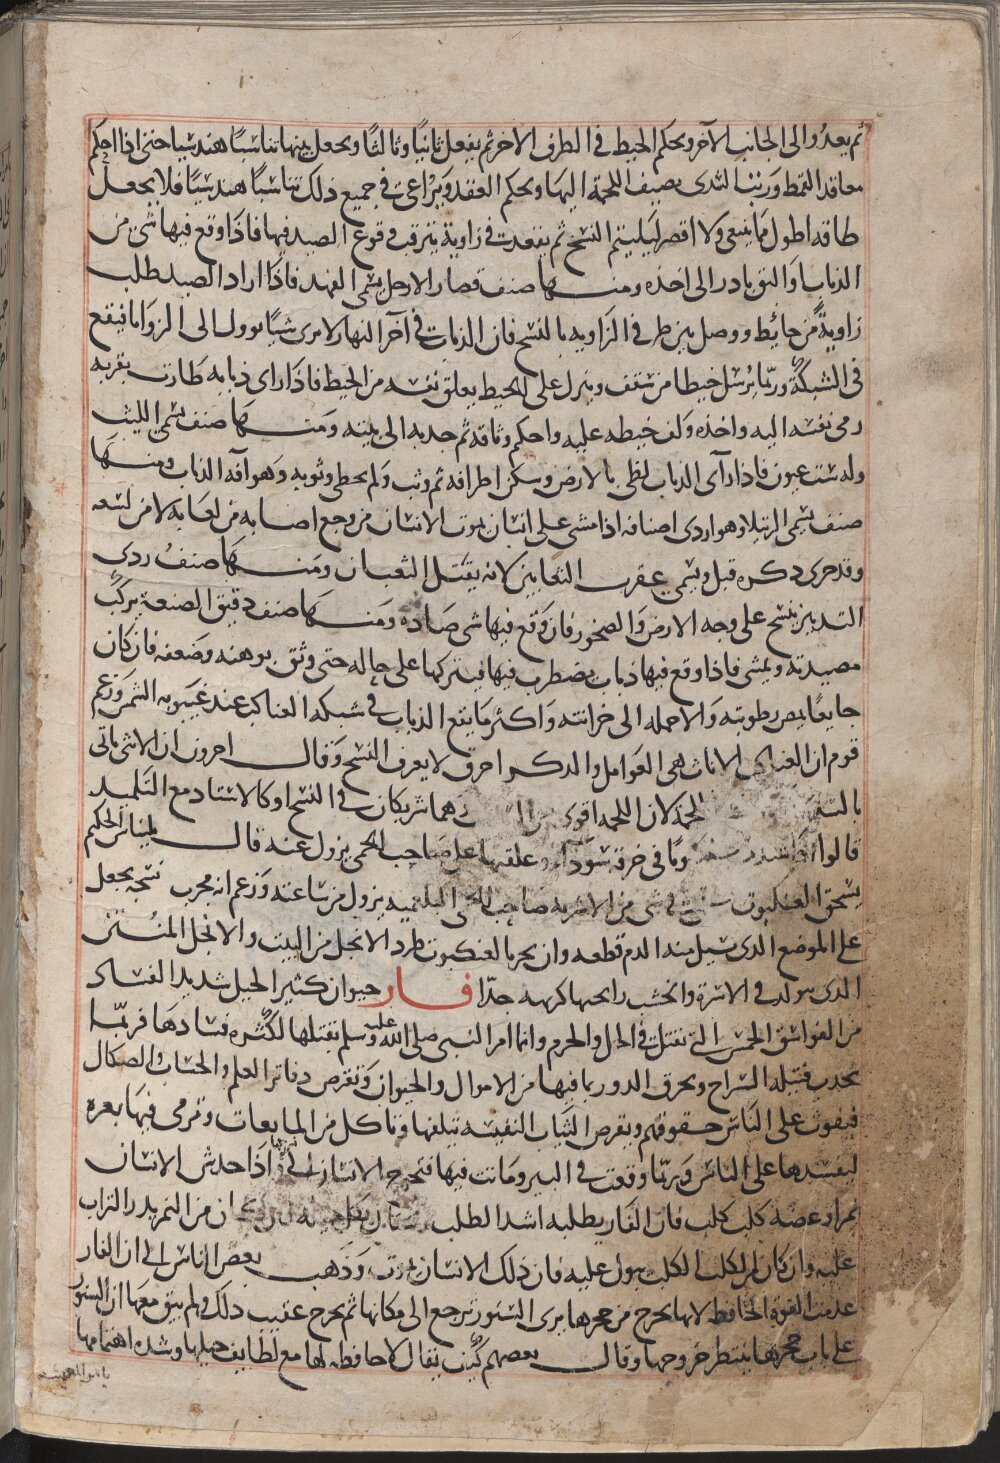 ثم يعدوا الى الجانب الآخر ويحكم الخيط فى الطرف الاخر ثم يفعل ثانيًا وثالثًا ويجعل بينها تناسبًا هندسيا حتى اذا احكم
معاقد القمط ورتب السدى يضيف اللحمة اليها ويحكم العقد ويراعى فى جميع ذلك تناسبًا هندسيًا فلا يجعل
طاقه اطول مما ينبغى ولا اقصر ليلتئم النسج ثم يقعد فى زاوية يترقب وقوع الصيد فيها فاذا وقع فيها شئ من
الذباب او البق بادر الى اخذه ومنها صنف قصار الارجل يسمى الفهد فاذا اراد الصيد طلب
زاوية من حائط ووصل بين طرفى الزاويه بالنسج فان الذباب فى آخر النهار لا يرى شيًا يوول الى الزوايا فيقع
فى الشبكة وربما يرسل خيطا من سقف وينزل على الخيط يعلق نفسه من الخيط فاذا راى ذبابه طارت بقربه
رمى نفسه اليه واخذه ولف خيطه عليه واحكم وثاقه ثم جذبه الى بيته ومنها صنف يسمى الليث
وله ست عيون فاذا رآى الذباب لطى بالارض وسكن اطرافه ثم وثب ولم يخطى وثوبه وهو آفه الذباب ومنها
صنف يسمى الرتيلا وهو اردى اصنافه اذا مشى على انسان يموت الانسان من وجع اصابه من لعابه لا من لسعه
وقد جرى ذكره قبل ويسمى عقرب الثعابين لانه يقتل الثعبان ومنها صنف ردى
التدبير ينسج على وجه الارض والصخور فان وقع فيها شى صاده ومنها صنف دقيق الصنعة يركب
مصيدته ويمشى فاذا وقع فيها ذباب يضطرب فيها فيتركها على حاله حتى وثق بوهنه وضعفه فان كان
جايعًا يمص رطوبته والا حمله الى خزانته واكثر ما يقع الذباب فى شبكه العناكب عند غيبوبه الشمس وزعم
قوم ان العناكب الاناث هى العوامل والذكر اخرق لا يعرف النسج وقال اخرون ان الانثى ياتى
بالسدى اللحمة لان اللحمه اقوى من هما شريكان فى النسج او كالاستاد مع التلميد
قالوا فى خرقه سودآ وعلقها على صاحب الحمى يزول عنه قال بليناس الحكيم
يسحق العنكبوت فى شى من الاشربه صاحب الحمى البلغميه يزول من ساعته وزعم انه مجرب نسجه يجعل
على الموضع الذى يسيل منه الدم قطعه وان بخر بالعنكبوت طرد الانجل من البيت والانجل المنتن
الذى يتولد فى الاسرة والخشب رايحتها كريهه جدًا فار حيوان كثير الحيل شديد الفساد
من الفواسق الخمس التى تقتل فى الحل والحرم وانما امر النبى صلى الله عليه وسلم بقتلها لكثرة فسادها فربما
يجذب فتيله السراج ويحرق الدور بما فيها من الاموال والحيوان وتقرض دفاتر العلم والحساب والصكاك
فيفوت على الناس حقوقهم ويقرض الثياب النفيسه يتلفها وتاكل من المايعات وترمى فيها بعره
ليفسدها على الناس وربما وقعت فى البير وماتت فيها فتحوج الناس الى اذا خدش الانسان
نمر او عضه كلب كلب فان الفار يطلبه اشد الطلب ان من النمر يذر التراب
عليه وان كان من الكلب الكلب يبول عليه فان ذلك الانسان يموت وذهب بعض الناس الى ان الفار
عدمت القوة الحافظه لانها تخرج من جحرها يرى السنور ترجع الى مكانها ثم تخرج عقيب ذلك ولم يبق معها ان السنور
على باب جحرها ينتظر خروجها وقال بعضهم كيف يقال لا حافظه لها مع لطايف حيلها وشده اهتمامها